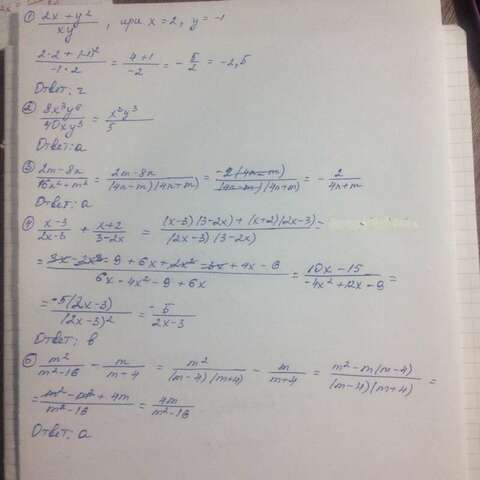 ① (2x + y²)/(xy), при x = 2, y = -1
(2·2 + (-1)²)/(-1·2) = (4+1)/(-2) = -5/2 = -2,5
Ответ: г
② (8x³y⁶)/(40xy³) = (x²y³)/5
Ответ: а
③ (2m-8n)/(16n²-m²) = (2m-8n)/((4n-m)(4n+m)) = (-2(4n-m))/((4n-m)(4n+m)) = -2/(4n+m)
Ответ: а
④ (x-3)/(2x-3) + (x+2)/(3-2x) = ((x-3)(3-2x)+(x+2)(2x-3))/((2x-3)(3-2x)) =
= (3x-2x²-9+6x+2x²-3x+4x-6)/(6x-4x²-9+6x) = (10x-15)/(-4x²+12x-9) =
= (-5(2x-3))/((2x-3)²) = -5/(2x-3)
Ответ: в
⑤ m²/(m²-16) - m/(m+4) = m²/((m-4)(m+4)) - m/(m+4) = (m²-m(m-4))/((m-4)(m+4)) =
= (m²-m²+4m)/(m²-16) = 4m/(m²-16)
Ответ: а